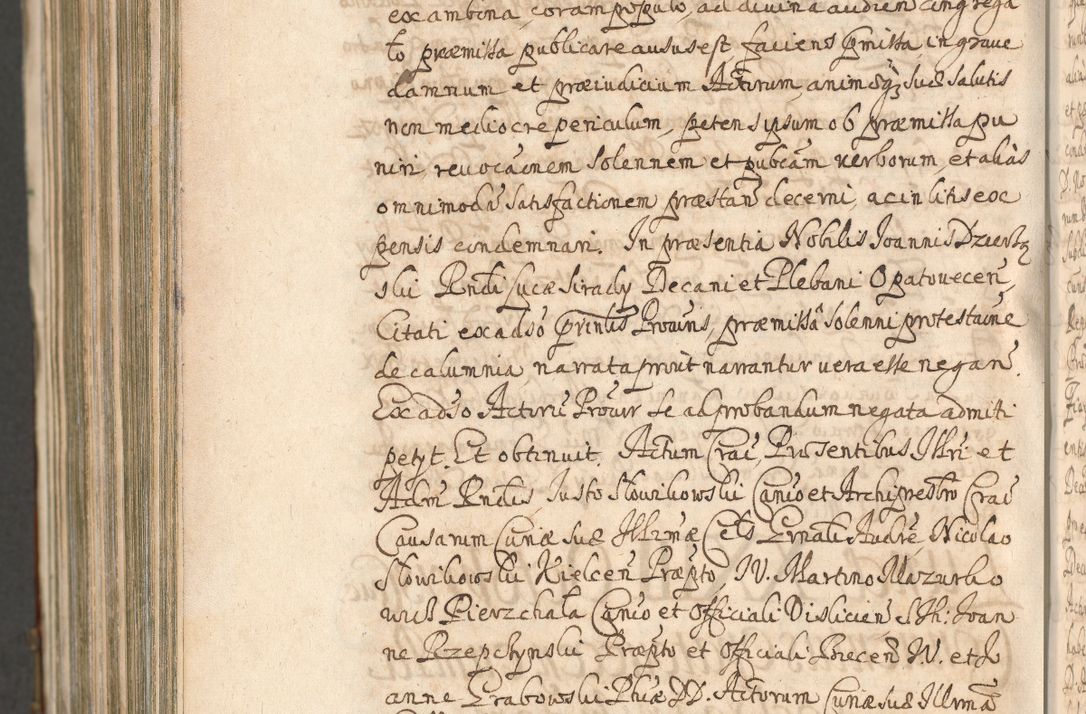 ex ambina, coram populo, ad divina audien congrega
to præmissa publicare ausus est faciens pmissa in grave
damnum et præiudicium Actorum, animæqz suæ salutis
non mediocre periculum, peten ipsum ob præmissa pu
niri, revocãonem solennem et pubcam verborum, et aliàs
omnimodã satisfactionem præstañ decerni, ac in litis ex
pensis condemnari. In præsentia Nobilis Joannis Dzierbz
ski Rndi Lucæ Sirady Decani et Plebani Opatouecen,
Citati ex adso prinlis Provins, præmissa solenni protestaõne
de calumnia narrata prout narrantur vera esse negañ.
Ex adso Actorũ Provir se ad probandum negata admitti
petyt. Et obtinuit. Actum Craĉ, Præsentibus Illri et
Adm Rndis Justo Słowikowski Canco et Archipresbro Crac
Causarum Curiæ suæ Illrmæ Cels Prnali Audre, Nicolao
Słowikowski Kielcen Præpto, IV. Martino Mazurko
wic Pierzchała Canco et Officiali Vislicien S. Th: Joan
ne Rzepchynski Præpto et Officiali Pilecen IV. et Jo
anne Grabowski Phiæ DD. Actorum Curiæ suæ Illrmæ